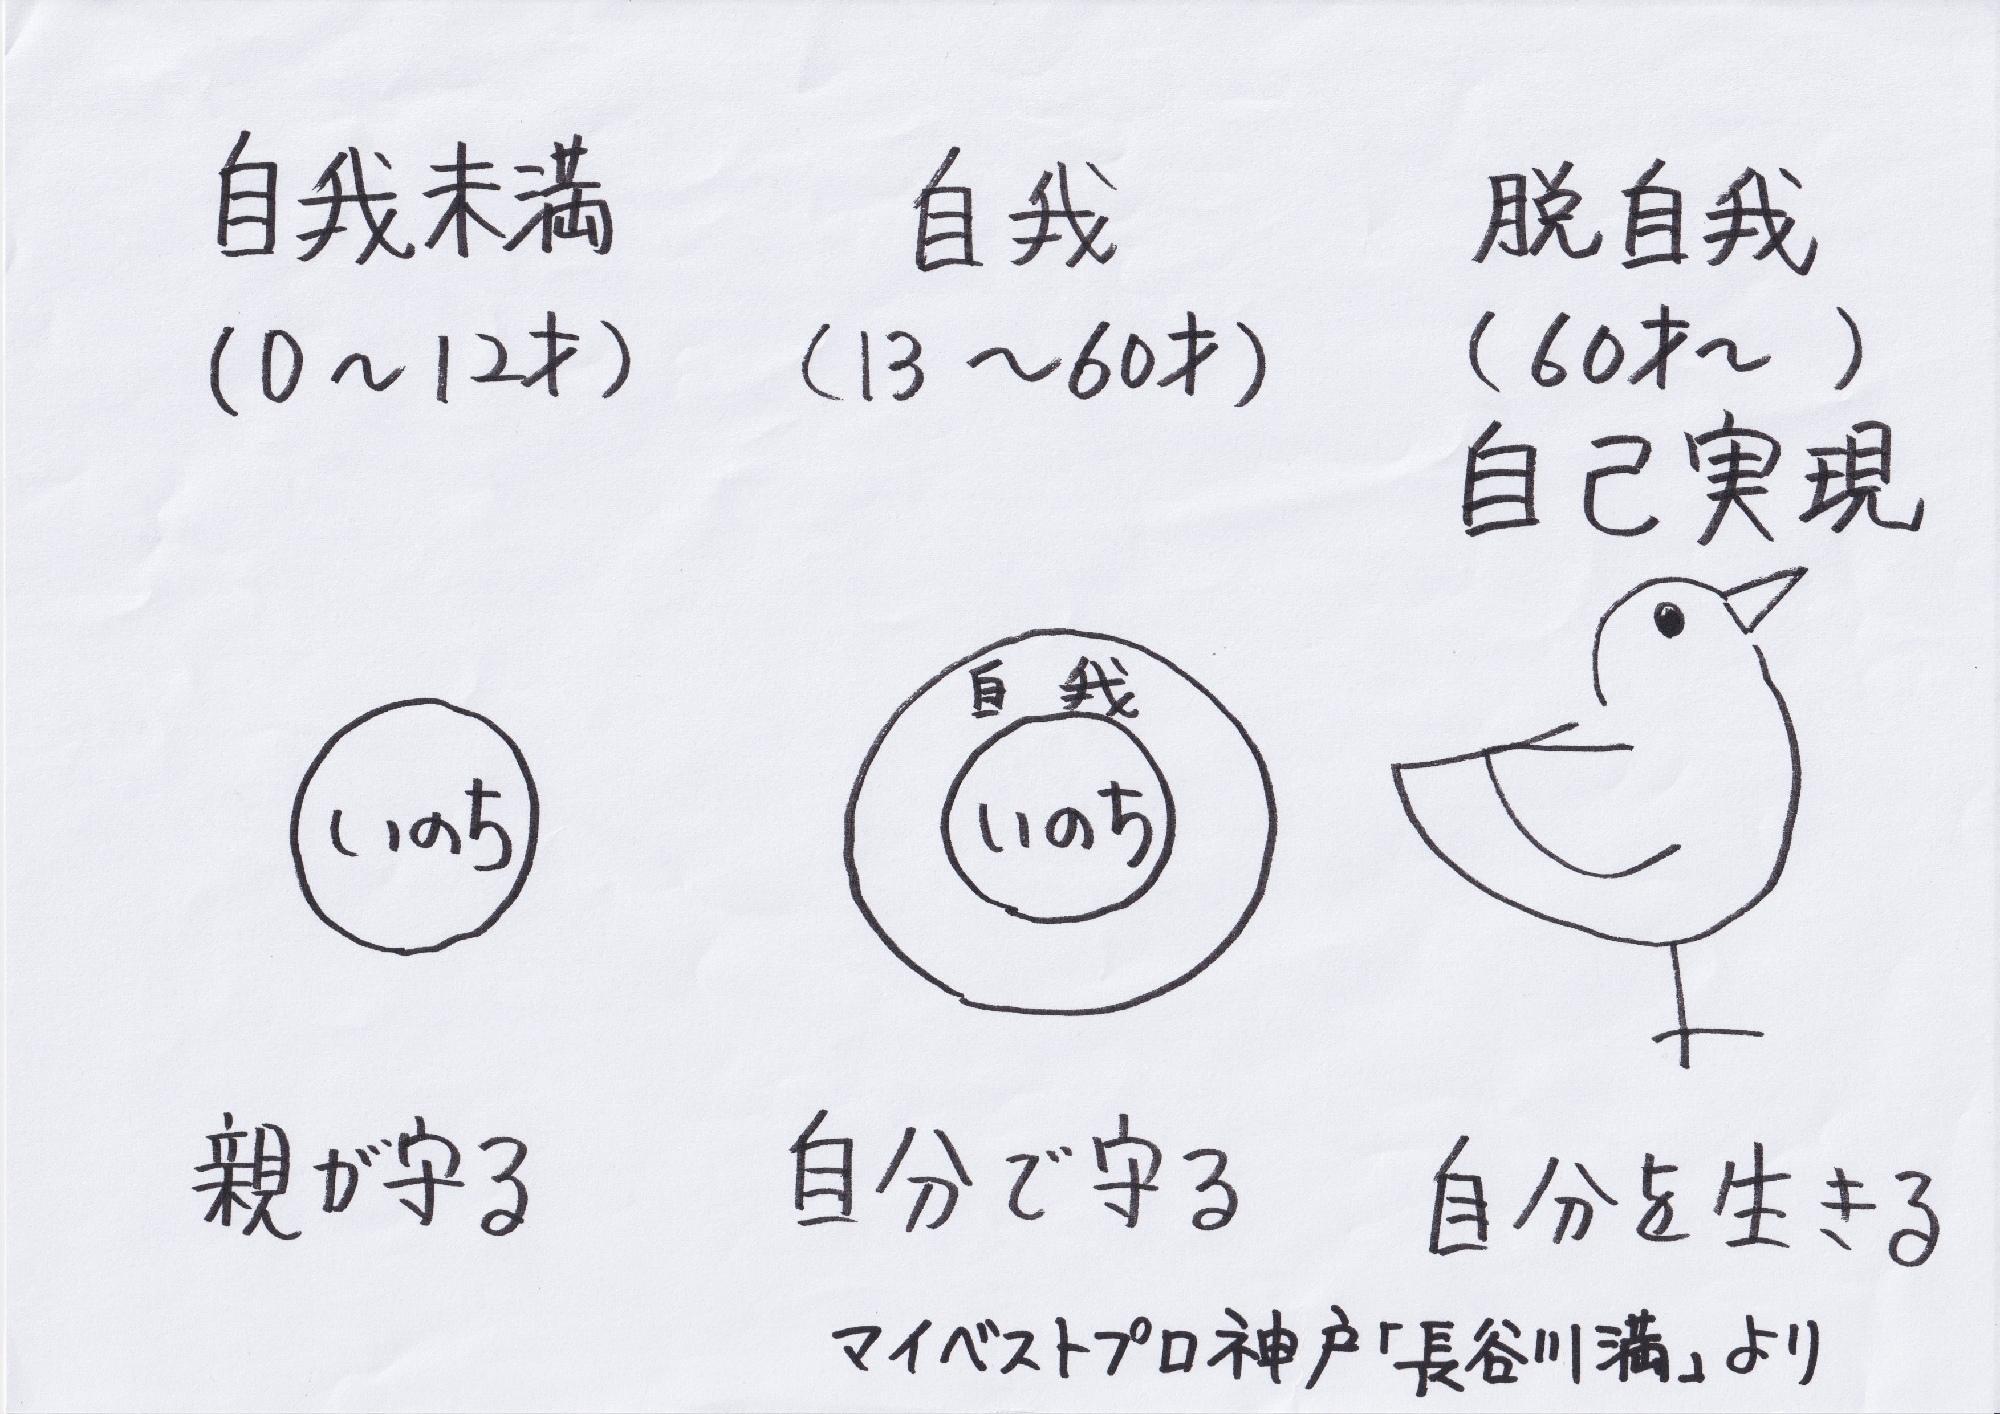 自我未満
(0～12才)
自我
(13～60才)
脱自我
(60才～ )
自己実現
いのち
自我
いのち
親が守る
自分で守る
自分を生きる
マイベストプロ神戸「長谷川満」より